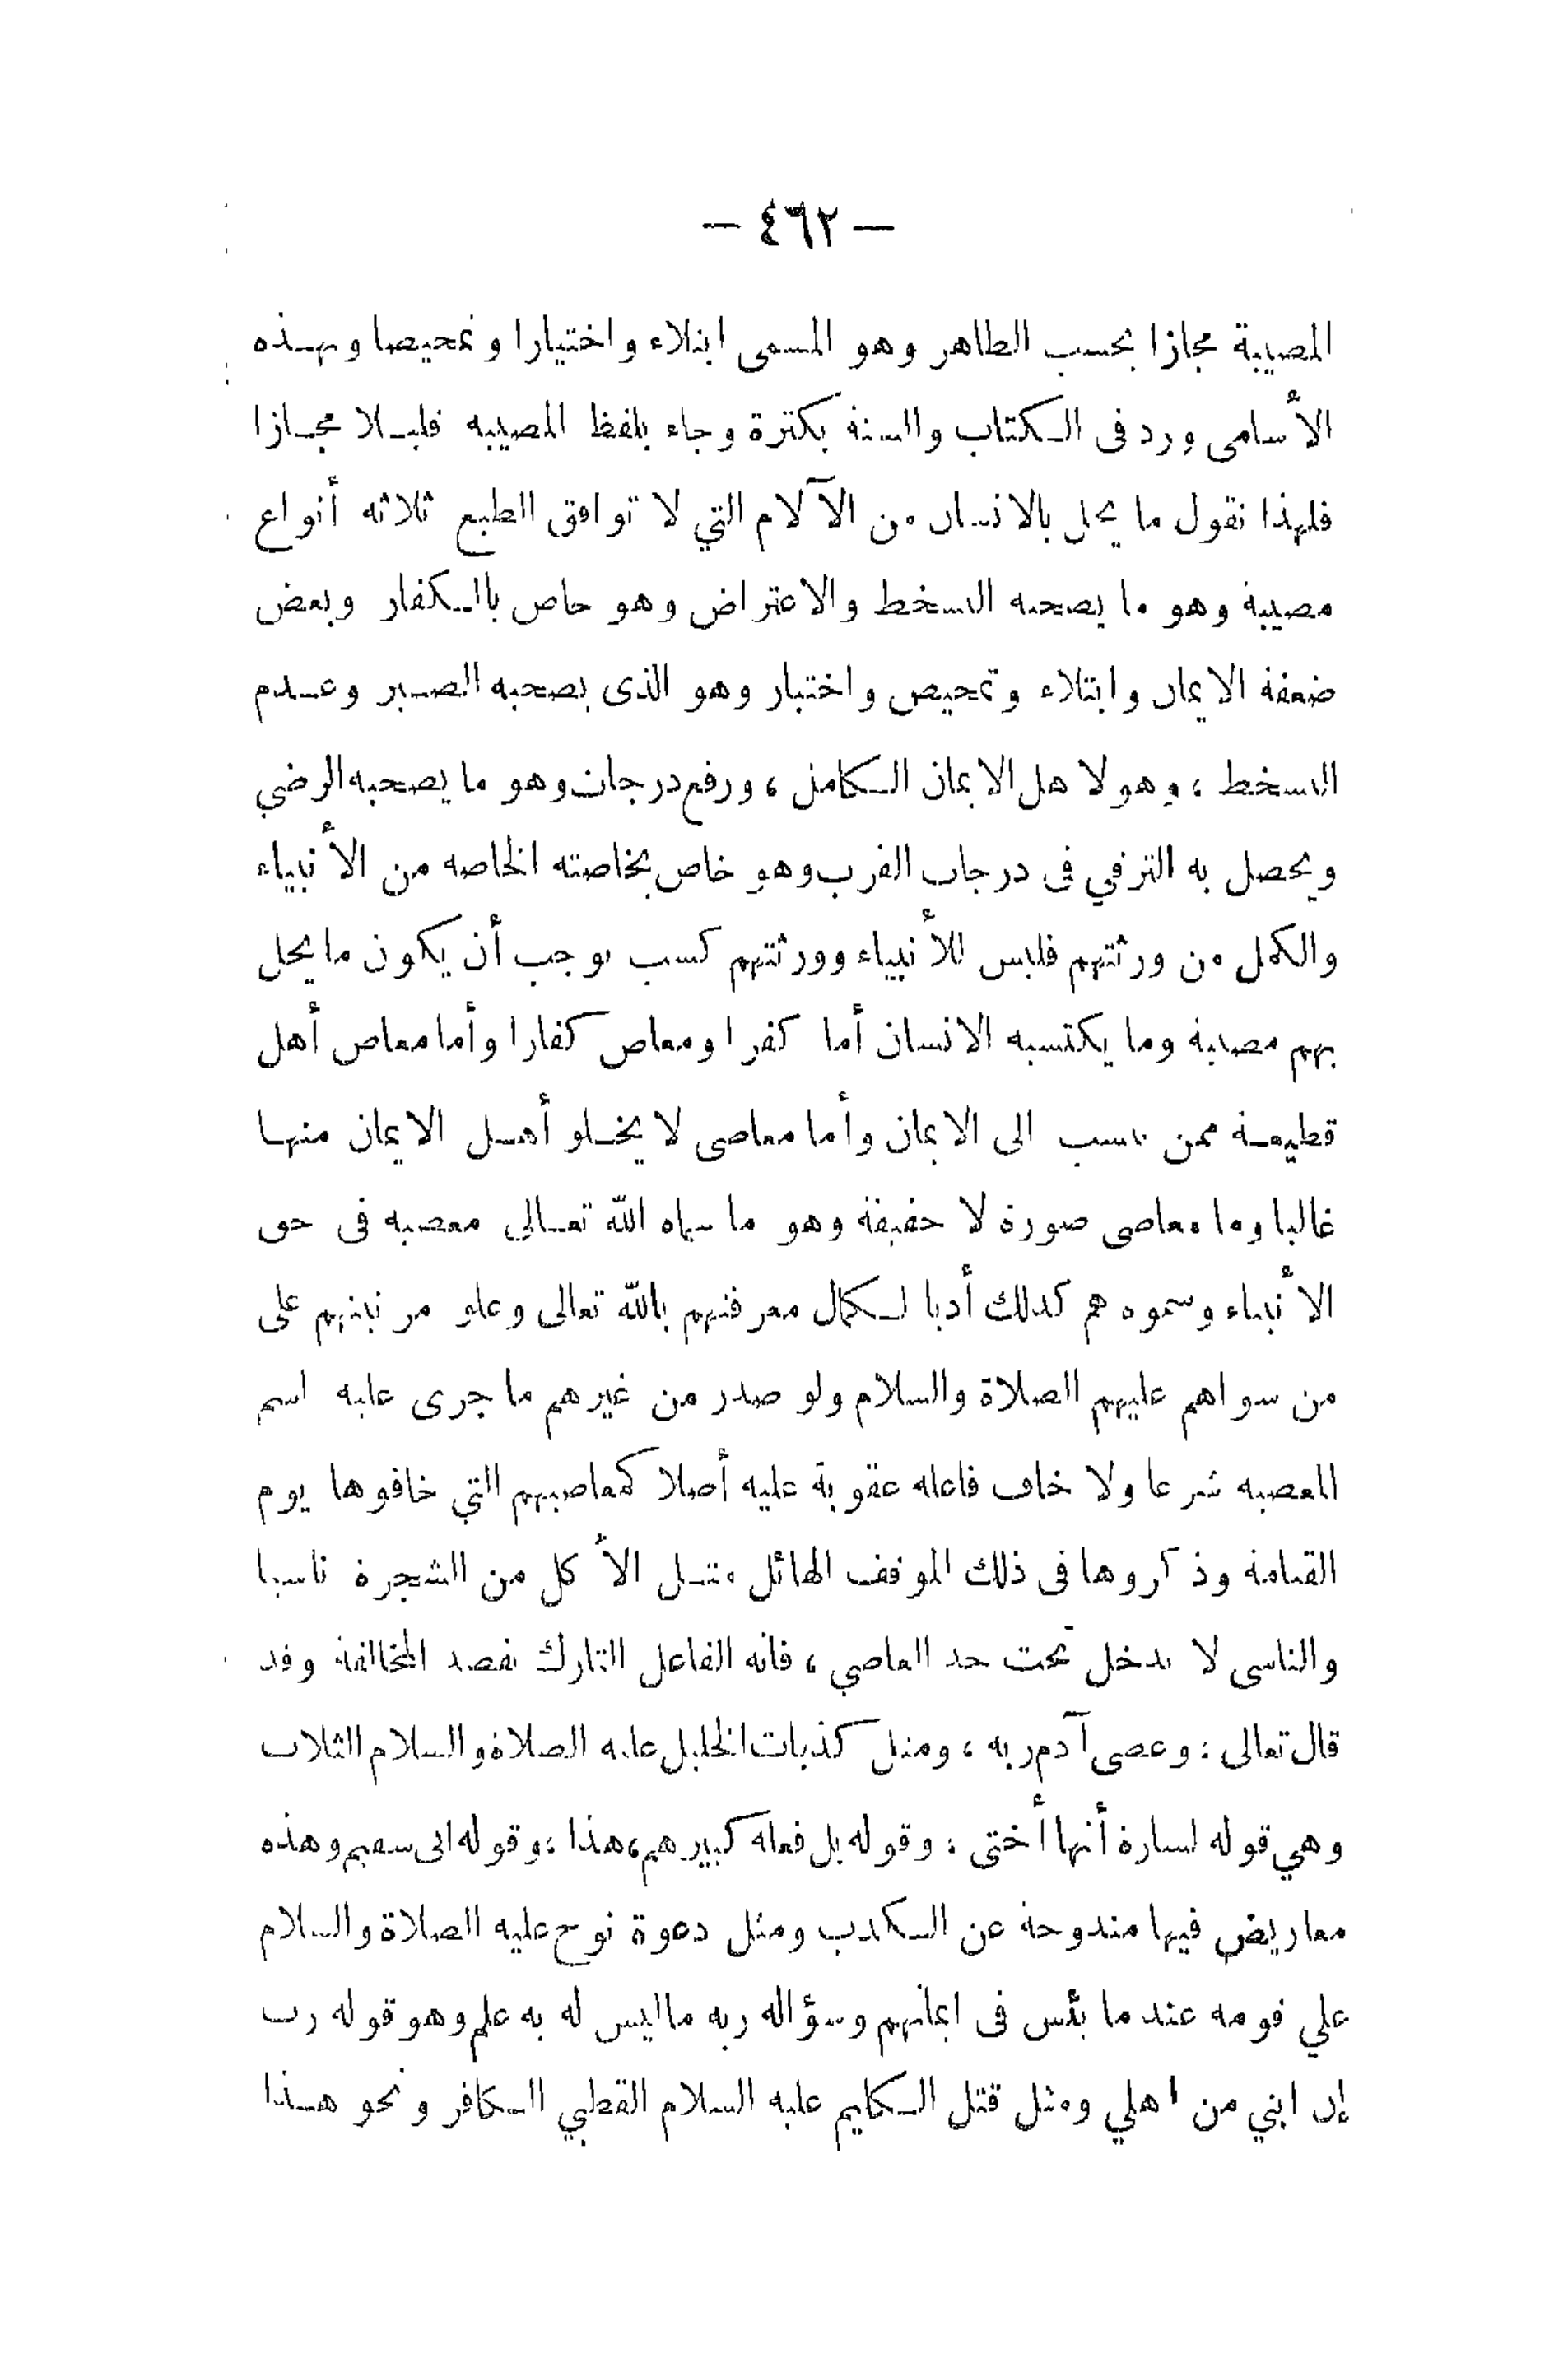 — ٤٦٢ —
المصيبة مجازا بحسب الظاهر وهو المسمى ابتلاء واختبارا وتمحيصا وبهذه
الأسامى ورد فى الكتاب والسنة بكثرة وجاء بلفظ المصيبة قليلا مجازا
فلهذا نقول ما يحل بالانسان من الآلام التي لا توافق الطبع ثلاثة أنواع
مصيبة وهو ما يصحبه السخط والاعتراض وهو خاص بالكفار وبعض
ضعفة الايمان وابتلاء وتمحيص واختبار وهو الذى يصحبه الصبر وعدم
السخط ، وهو لا هل الايمان الكامل ، ورفع درجات وهو ما يصحبه الرضي
ويحصل به الترقي فى درجات القرب وهو خاص بخاصته الخاصة من الأنبياء
والكمل من ورثتهم فليس للأنبياء وورثتهم كسب يوجب أن يكون ما يحل
بهم مصيبة وما يكتسبه الانسان أما كفرا ومعاص كفارا وأما معاص أهل
قطيعة ممن ينسب الى الايمان وأما معاصى لا يخلو أهل الايمان منها
غالبا وما معاصى صورة لا حقيقة وهو ما سماه الله تعالى معصية فى حق
الأنبياء وسموه هم كذلك أدبا لكمال معرفتهم بالله تعالى وعلو مرتبتهم على
من سواهم عليهم الصلاة والسلام ولو صدر من غيرهم ما جرى عليه اسم
المعصية شرعا ولا خاف فاعله عقوبة عليه أصلا كمعاصيهم التي خافوها يوم
القيامة وذكروها فى ذلك الموقف الهائل مثل الأكل من الشجرة ناسيا
والناسى لا يدخل تحت حد العاصي ، فانه الفاعل التارك بقصد المخالفة وقد
قال تعالى : وعصى آدم ربه ، ومثل كذبات الخليل عليه الصلاة والسلام الثلاث
وهي قوله لسارة أنها أختى : وقوله بل فعله كبيرهم ، هذا : وقوله انى سقيم وهذه
معاريض فيها مندوحة عن الكذب ومثل دعوة نوح عليه الصلاة والسلام
علي قومه عند ما يئس فى ايمانهم وسؤاله ربه ما ليس له به علم وهو قوله رب
إن ابني من اهلي ومثل قتل الكليم عليه السلام القطبي الكافر ونحو هذا